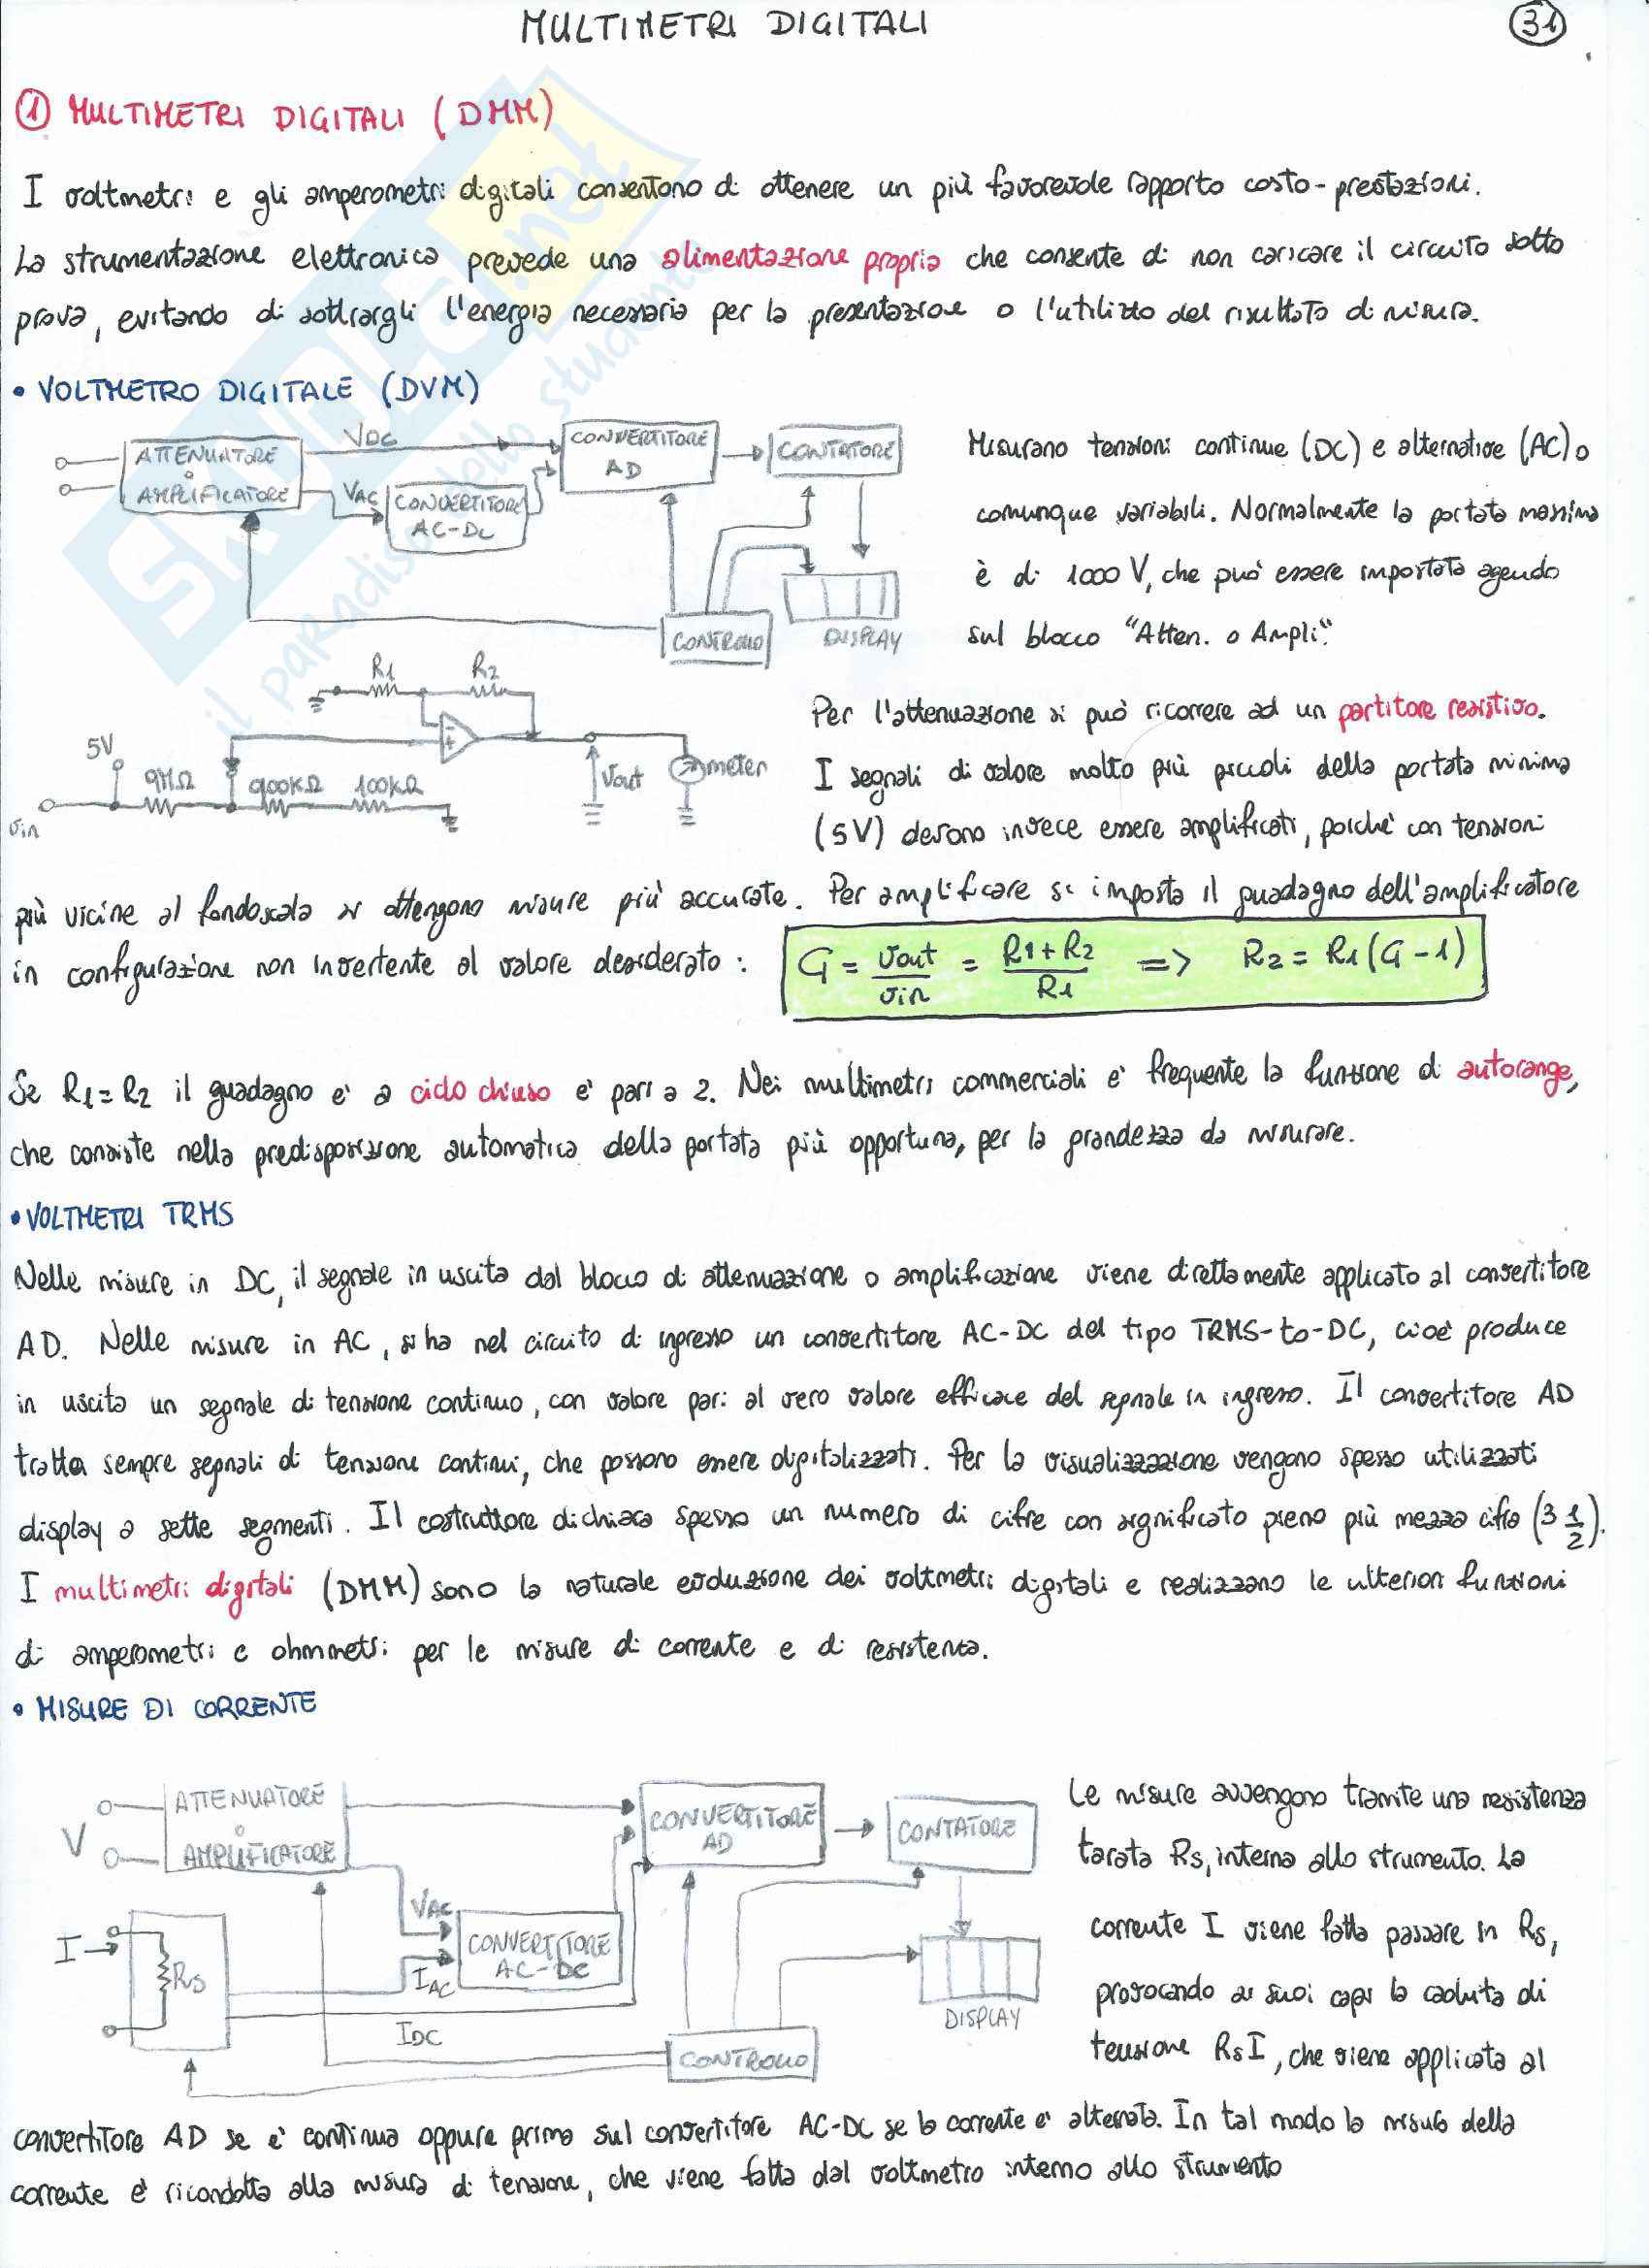 MULTIMETRI DIGITALI
31
① MULTIMETRI DIGITALI (DMM)
I voltmetri e gli amperometri digitali consentono di ottenere un più favorevole rapporto costo-prestazioni.
La strumentazione elettronica prevede una alimentazione propria che consente di non caricare il circuito sotto
prova, evitando di sottrargli l'energia necessaria per la presentazione o l'utilizzo del risultato di misura.
• VOLTMETRO DIGITALE (DVM)
ATTENUATORE
O
AMPLIFICATORE
VDC
VAC
CONVERTITORE
AC-DC
CONVERTITORE
AD
CONTATORE
CONTROLLO
DISPLAY
Misurano tensioni continue (DC) e alternative (AC) o
comunque variabili. Normalmente la portata massima
è di 1000 V, che può essere impostata agendo
sul blocco "Atten. o Ampli".
R1
R2
5V
9MΩ
900KΩ
100KΩ
vin
Vout
meter
Per l'attenuazione si può ricorrere ad un partitore resistivo.
I segnali di valore molto più piccoli della portata minima
(5V) devono invece essere amplificati, poiché con tensioni
più vicine al fondoscala si ottengono misure più accurate. Per amplificare si imposta il guadagno dell'amplificatore
in configurazione non invertente al valore desiderato: G = vout/vin = R1+R2/R1 => R2 = R1(G-1)
Se R1=R2 il guadagno è a ciclo chiuso è pari a 2. Nei multimetri commerciali è frequente la funzione di autorange,
che consiste nella predisposizione automatica della portata più opportuna, per la grandezza da misurare.
• VOLTMETRI TRMS
Nelle misure in DC, il segnale in uscita dal blocco di attenuazione o amplificazione viene direttamente applicato al convertitore
AD. Nelle misure in AC, si ha nel circuito di ingresso un convertitore AC-DC del tipo TRMS-to-DC, cioè produce
in uscita un segnale di tensione continuo, con valore pari al vero valore efficace del segnale in ingresso. Il convertitore AD
tratta sempre segnali di tensione continui, che possono essere digitalizzati. Per la visualizzazione vengono spesso utilizzati
display a sette segmenti. Il costruttore dichiara spesso un numero di cifre con significato pieno più mezza cifra (3 1/2).
I multimetri digitali (DMM) sono la naturale evoluzione dei voltmetri digitali e realizzano le ulteriori funzioni
di amperometri e ohmmetri per le misure di corrente e di resistenza.
• MISURE DI CORRENTE
V
ATTENUATORE
O
AMPLIFICATORE
I
RS
VAC
IAC
IDC
CONVERTITORE
AC-DC
CONVERTITORE
AD
CONTATORE
DISPLAY
CONTROLLO
Le misure avvengono tramite una resistenza
tarata Rs, interna allo strumento. La
corrente I viene fatta passare in Rs,
provocando ai suoi capi la caduta di
tensione RsI, che viene applicata al
convertitore AD se è continua oppure prima sul convertitore AC-DC se la corrente è alternata. In tal modo la misura della
corrente è ricondotta alla misura di tensione, che viene fatta dal voltmetro interno allo strumento
SKUOLA.net
il paradiso dello studente